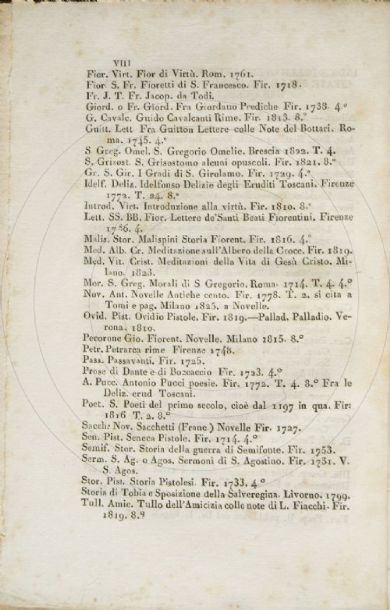 VIII
Fior. Virt. Fior di Virtù. Rom. 1761.
Fior S. Fr. Fioretti di S. Francesco. Fir. 1718.
Fr. J. T. Fr. Jacop. da Todi.
Giord. o Fr. Giord. Fra Giordano Prediche Fir. 1738. 4.º
G. Cavalc. Guido Cavalcanti Rime. Fir. 1813. 8.º
Guitt. Lett Fra Guitton Lettere colle Note del Bottari. Ro-
ma. 1745. 4.º
S Greg. Omel. S. Gregorio Omelie. Brescia 1822. T. 4.
S. Grisost. S. Grisostomo alcuni opuscoli. Fir. 1821. 8.º
Gr. S. Gir. I Gradi di S. Girolamo. Fir. 1729. 4.º
Idelf. Deliz. Idelfonso Delizie degli Eruditi Toscani. Firenze
1772. T. 24. 8.º
Introd. Virt. Introduzione alla virtù. Fir. 1810. 8.º
Lett. SS. BB. Fior. Lettere de'Santi Beati Fiorentini. Firenze
1736. 4.
Maliz. Stor. Malispini Storia Fiorent. Fir. 1816. 4.º
Med. Alb. Cr. Meditazione sull'Albero della Croce. Fir. 1819.
Med. Vit. Crist. Meditazioni della Vita di Gesù Cristo. Mi-
lano. 1823.
Mor. S. Greg. Morali di S Gregorio. Roma. 1714. T. 4. 4.º
Nov. Ant. Novelle Antiche cento. Fir. 1778. T. 2. si cita a
Tomi e pag. Milano 1825. a Novelle.
Ovid. Pist. Ovidio Pistole. Fir. 1819.—Pallad. Palladio. Ve-
rona. 1810.
Pecorone Gio. Fiorent. Novelle. Milano 1815. 8.º
Petr. Petrarca rime Firenze 1748.
Pass. Passavanti. Fir. 1725.
Prose di Dante e di Boccaccio Fir. 1723. 4.º
A. Pucc. Antonio Pucci poesie. Fir. 1772. T. 4. 8.º Fra le
Deliz. erud Toscani.
Poet. S. Poeti del primo secolo, cioè dal 1197 in qua. Fir:
1816 T. 2. 8.º
Sacch: Nov. Sacchetti (Franc.) Novelle Fir. 1727.
Sen. Pist. Seneca Pistole. Fir. 1714. 4.º
Semif. Stor. Storia della guerra di Semifonte. Fir. 1753.
Serm. S. Ag. o Agos. Sermoni di S. Agostino. Fir. 1731. V.
S. Agos.
Stor. Pist. Storia Pistolesi. Fir. 1733. 4.º
Storia di Tobia e Sposizione della Salveregina. Livorno. 1799.
Tull. Amic. Tullo dell'Amicizia colle note di L. Fiacchi. Fir.
1819. 8.º